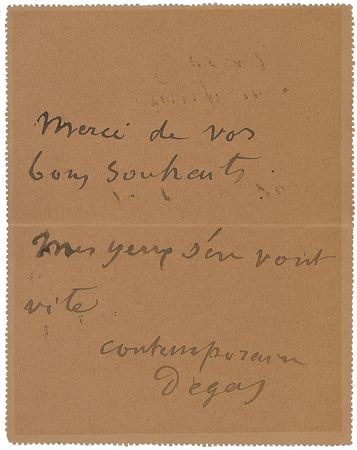 Merci de vos
bons souhaits
Mes yeux s'en vont
vite
contemporain
Degas